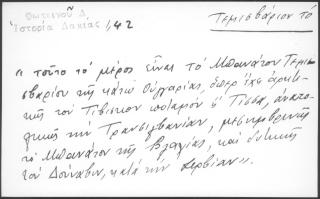 Φωτεινοῦ Δ.
Ἱστορία Δακίας 1,42
Τεμισβάριον τὸ
"τοῦτο τὸ μέρος εἶναι τὸ Μπανάτον Τεμι
σβαρίου τῆς κάτω Οὑγγαρίας, ὅπερ ἔχει ἀρκτι-
κῆς τὸν Τιβίσκον ποταμὸν ἢ Τίσσα, ἀνατο-
λικῆς τὴν Τρανσιλβανίαν, μεσημβρινῆς
τὸ Μπανάτον τῆς Βλαχίας, καὶ δυτικῆς
τὸν Δούναβιν, κατὰ τὴν Σερβίαν".